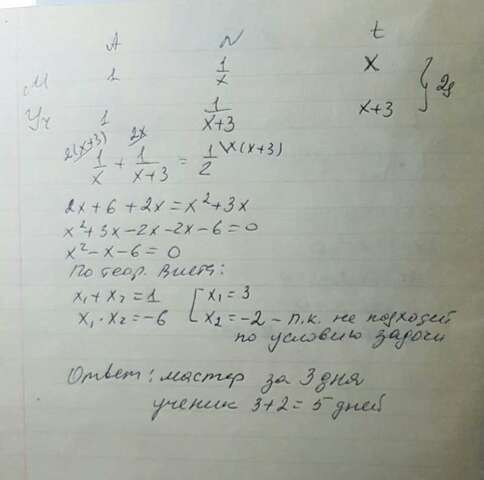 A N t
М 1 1/x x
Уч 1 1/(x+3) x+3 } 2д
2(x+3) 2x
1/x + 1/(x+3) = 1/2 \x(x+3)
2x+6+2x=x²+3x
x²+3x-2x-2x-6=0
x²-x-6=0
По теор. Виета:
x₁+x₂=1 [x₁=3
x₁·x₂=-6 x₂=-2 - п.к. не подходит
по условию задачи
Ответ: мастер за 3 дня
ученик 3+2=5 дней